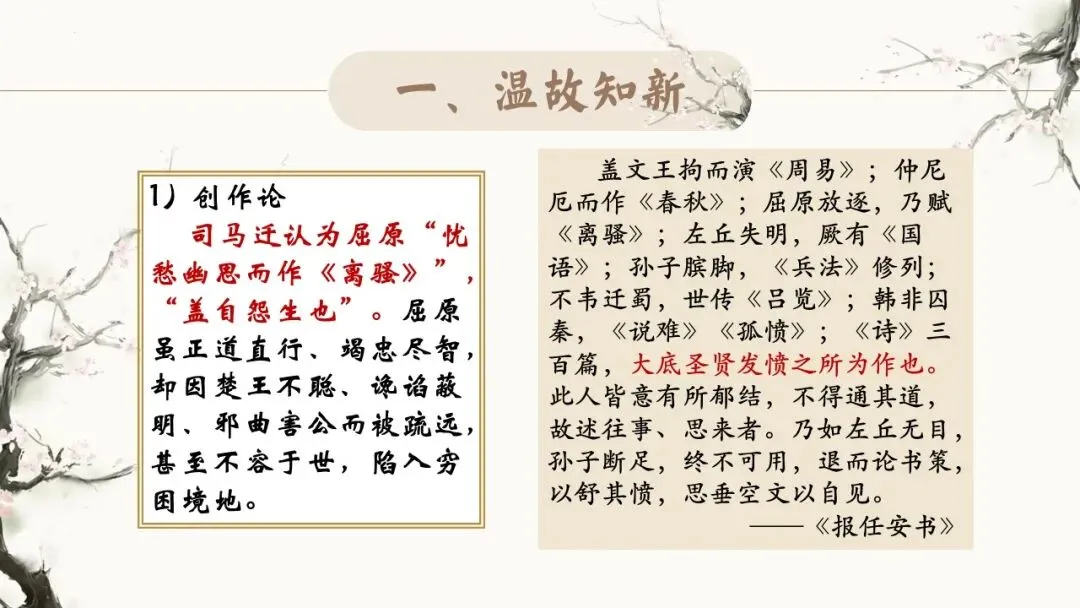 一、温故知新
1）创作论
司马迁认为屈原“忧
愁幽思而作《离骚》”，
“盖自怨生也”。屈原
虽正道直行、竭忠尽智，
却因楚王不聪、谗谄蔽
明、邪曲害公而被疏远，
甚至不容于世，陷入穷
困境地。
盖文王拘而演《周易》；仲尼
厄而作《春秋》；屈原放逐，乃赋
《离骚》；左丘失明，厥有《国
语》；孙子膑脚，《兵法》修列；
不韦迁蜀，世传《吕览》；韩非囚
秦，《说难》《孤愤》；《诗》三
百篇，大底圣贤发愤之所为作也。
此人皆意有所郁结，不得通其道，
故述往事、思来者。乃如左丘无目，
孙子断足，终不可用，退而论书策，
以舒其愤，思垂空文以自见。
——《报任安书》